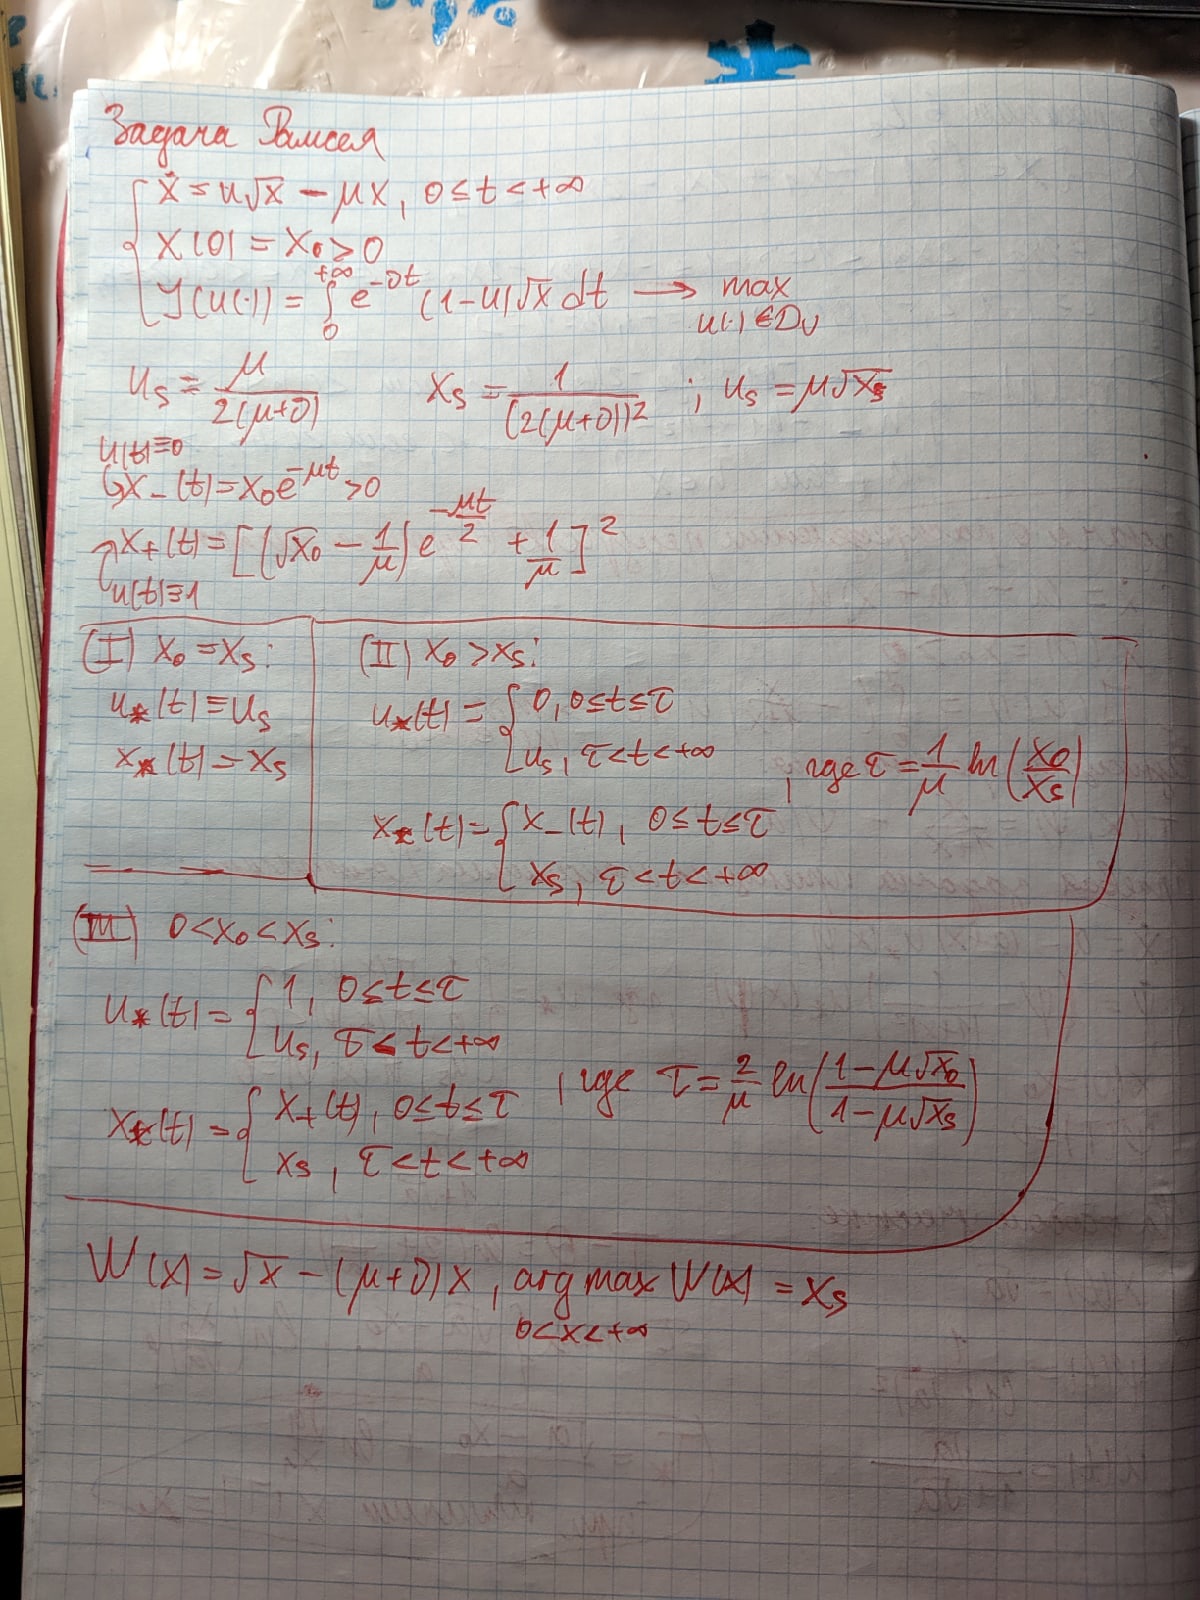 Задача Рамсея
{ ẋ = u√x − μx, 0 ≤ t < +∞
x(0) = x₀ > 0
J(u(·)) = ∫₀^{+∞} e^{−δt} (1−u)√x dt → max_{u(·) ∈ D_U}
u_s = μ / (2(μ+δ))   x_s = 1 / (2(μ+δ))² ; u_s = μ√x_s
u(t)≡0
x₋(t) = x₀e^{−μt} > 0
x₊(t) = [(√x₀ − 1/μ) e^{−μt/2} + 1/μ]²
u(t)≡1
(I) x₀ = x_s:
u_*(t) ≡ u_s
x_*(t) = x_s
(II) x₀ > x_s:
u_*(t) = { 0, 0≤t≤τ
u_s, τ<t<+∞
, где τ = 1/μ ln(x₀/x_s)
x_*(t) = { x₋(t), 0≤t≤τ
x_s, τ<t<+∞
(III) 0 < x₀ < x_s:
u_*(t) = { 1, 0≤t≤τ
u_s, τ < t < +∞
, где τ = 2/μ ln((1−μ√x₀)/(1−μ√x_s))
x_*(t) = { x₊(t), 0≤t≤τ
x_s, τ<t<+∞
W(x) = √x − (μ+δ)x, arg max W(x) = x_s
0<x<+∞